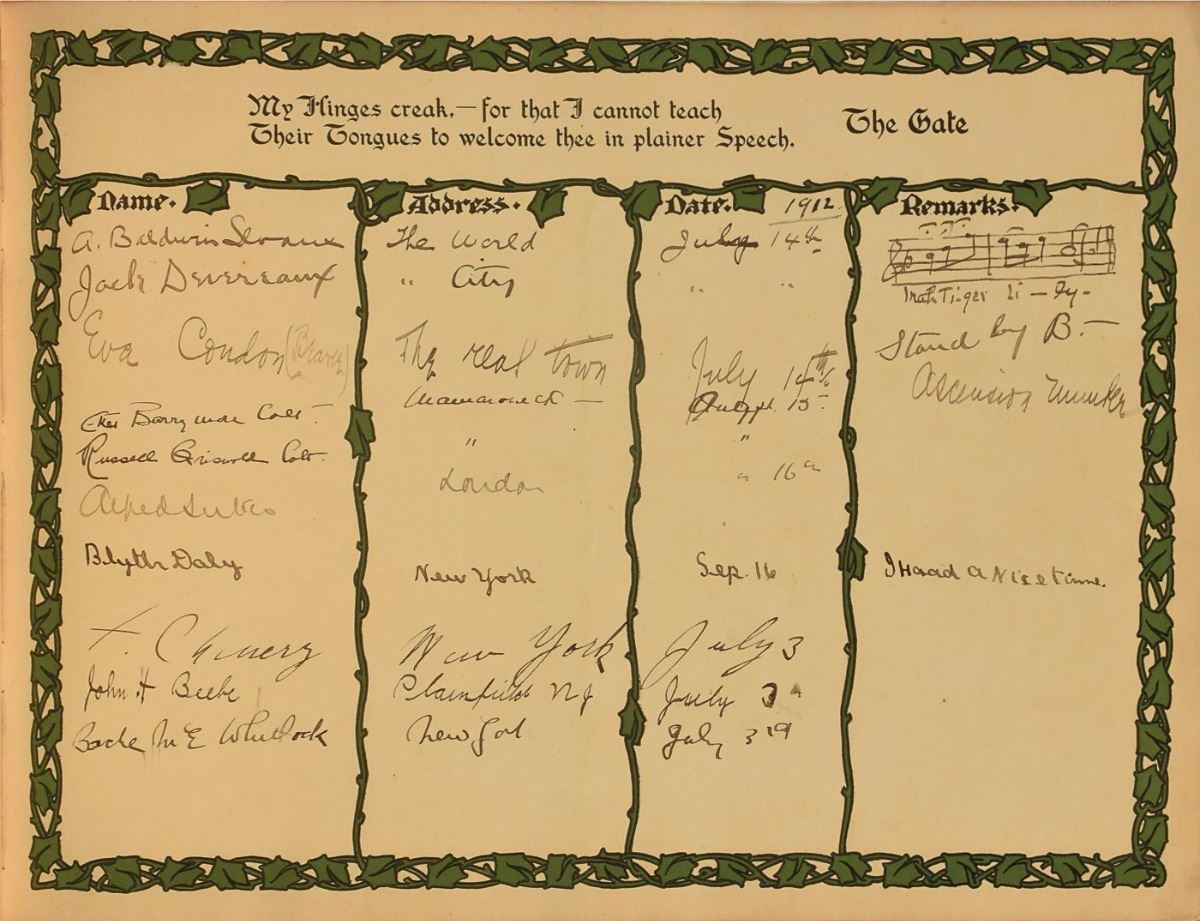 My Hinges creak,—for that I cannot teach
Their Tongues to welcome thee in plainer Speech.
The Gate
Name. Address. Date. 1912 Remarks.
A. Baldwin Sloane The World July 14th
Jack Devereaux " City " " Mah Ti-ger Li-ly-
Eva Condon The real town July 14th Stand by B.—
Ascension
Ethel Barrymore Colt — Mamaroneck — August 15
Russell Griswold Colt. " "
London " 16
Blyth Daly New York Sep. 16 I Haad a Nice time.
New York July 3
John H Beebe Plainfield NJ July 3
Bache McE Whitlock New York July 3rd